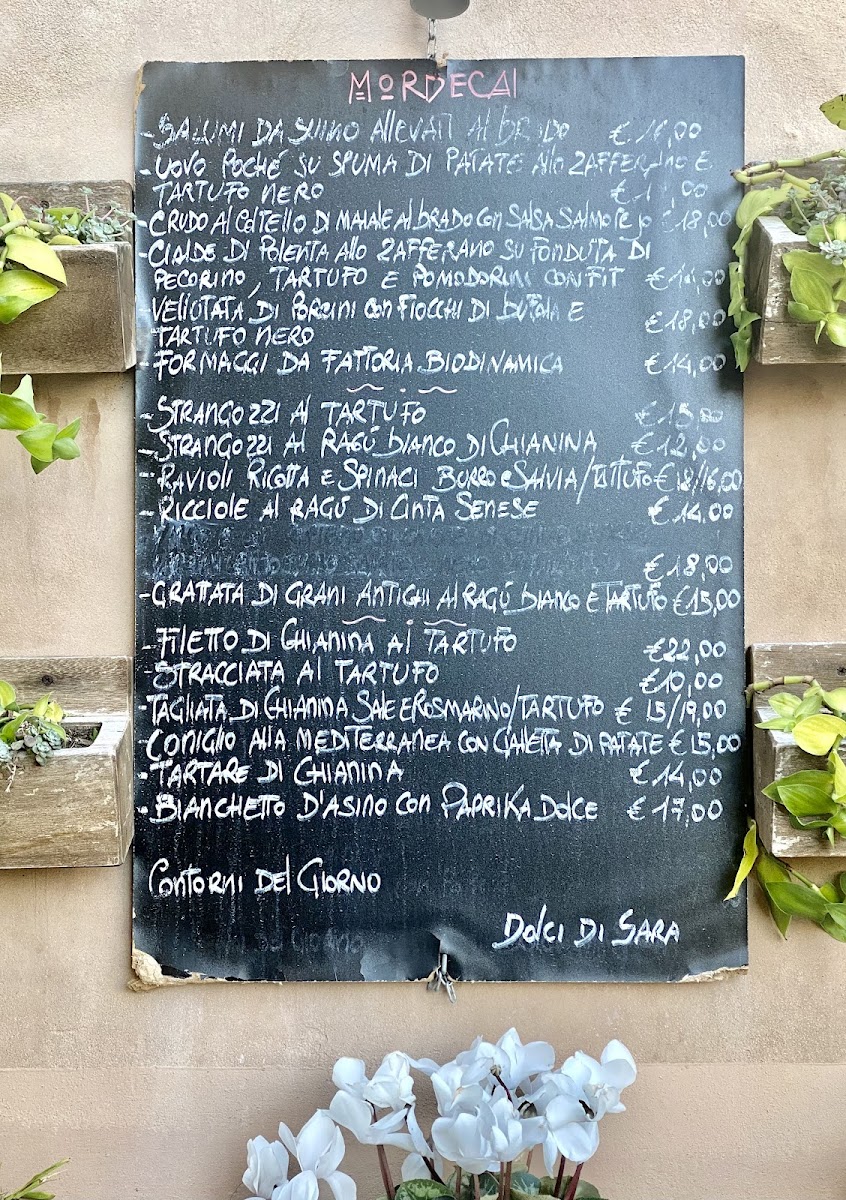 MORDECAI
- SALUMI DA SUINO AllEVATI Al BRADO € 16,00
- UOVO POCHÉ SU SPUMA DI PATATE Allo ZAFFERANO E
TARTUFO NERO € 1 ,00
- CRUDO Al COLTELLO DI MAIALE Al BRADO CON SALSA SALMOREJO €18,00
- CIALDE DI POLENTA Allo ZAFFERANO SU FONDUTA DI
PECORINO, TARTUFO E POMODORINI CONFIT €14,00
- VELLUTATA DI PORCINI CON FIOCCHI DI BUFALA E
TARTUFO NERO €18,00
- FORMAGGI DA FATTORIA BIODINAMICA €14,00
- STRANGOZZI Al TARTUFO €15,00
- STRANGOZZI Al RAGÚ BIANCO DI CHIANINA €12,00
- RAVIOLI RICOTTA E SPINACI BURRO e SALVIA/TARTUFO €
- RICCIOLE Al RAGÚ DI CINTA SENESE €14,00
€18,00
- GRATTATA DI GRANI ANTICHI Al RAGÚ BIANCO E TARTUFO €15,00
- FILETTO DI CHIANINA Al TARTUFO €22,00
- STRACCIATA Al TARTUFO €10,00
- TAGLIATA DI CHIANINA SALE E ROSMARINO/TARTUFO € 15/19,00
- CONIGLIO ALLA MEDITERRANEA CON CIALLETTA DI PATATE €15,00
- TARTARE DI CHIANINA €14,00
- BIANCHETTO D'ASINO CON PAPRIKA DOLCE €17,00
CONTORNI DEL GIORNO
DOLCI DI SARA